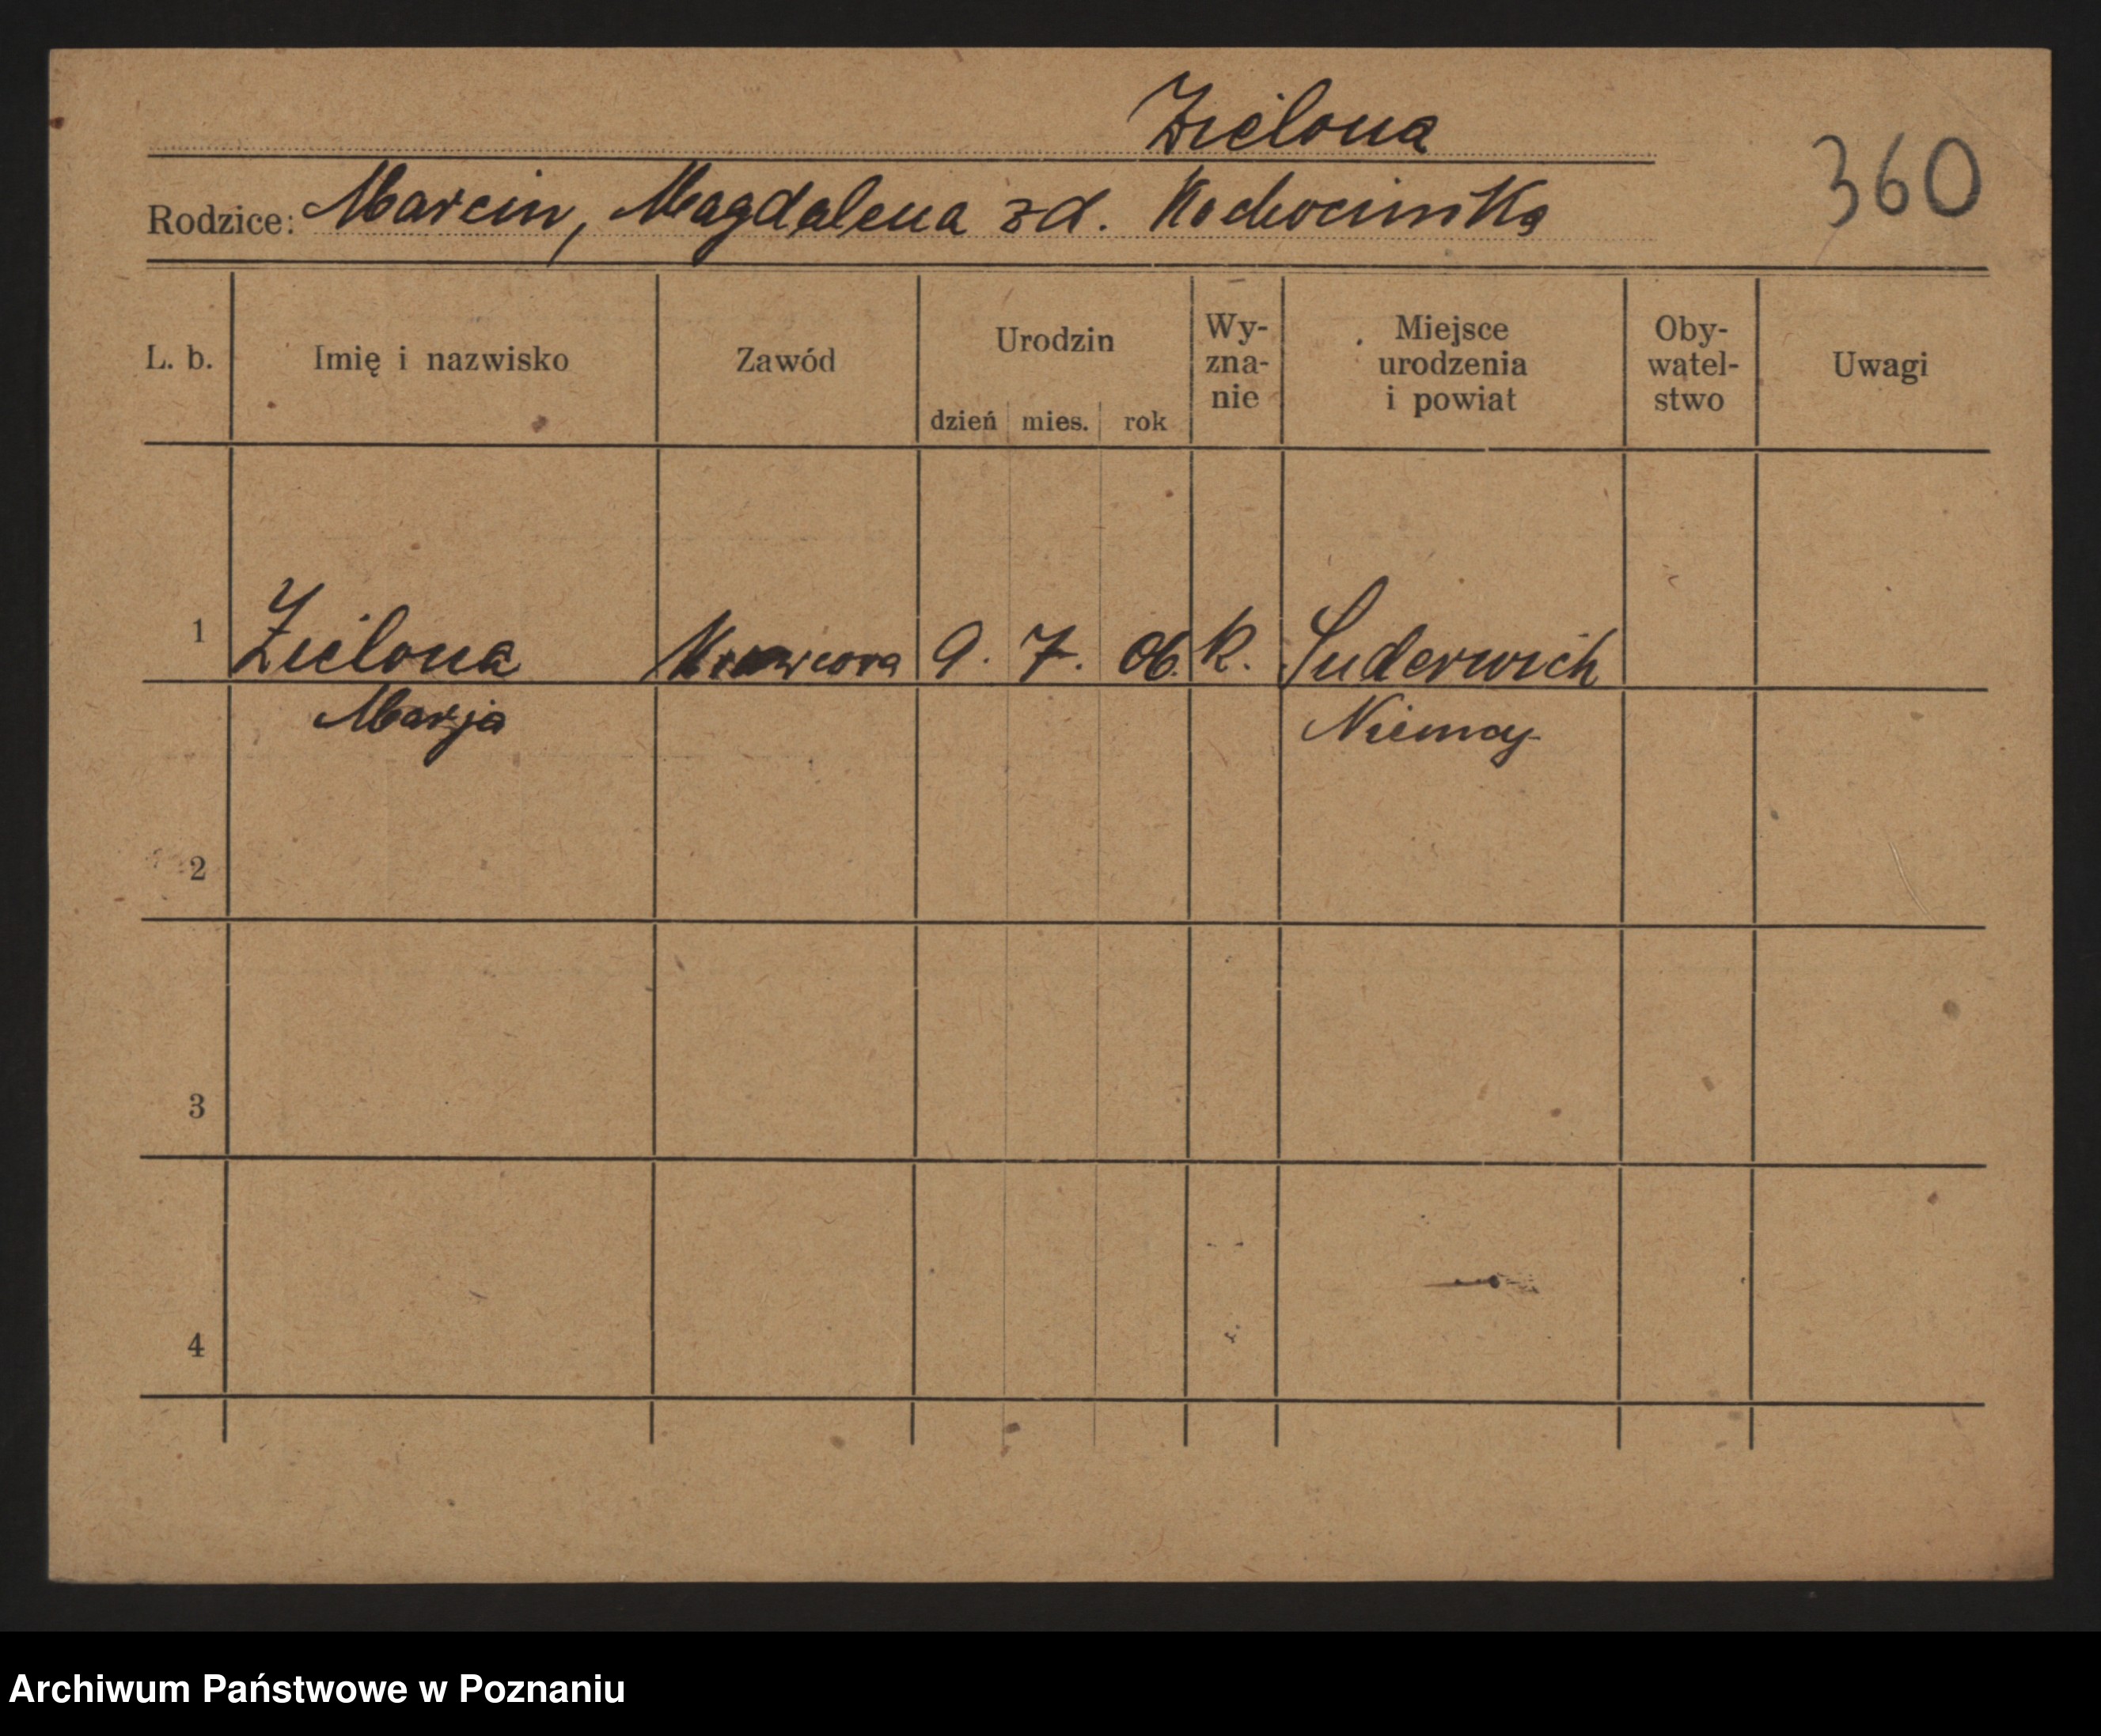 Zielona
360
Rodzice: Marcin, Magdalena zd.
L. b. Imię i nazwisko Zawód Urodzin dzień mies. rok Wy-zna-nie Miejsce urodzenia i powiat Oby-watel-stwo Uwagi
1 Zielona 9. 7. 06. k. Suderwich
Marja Niemcy
2
3
4
Archiwum Państwowe w Poznaniu